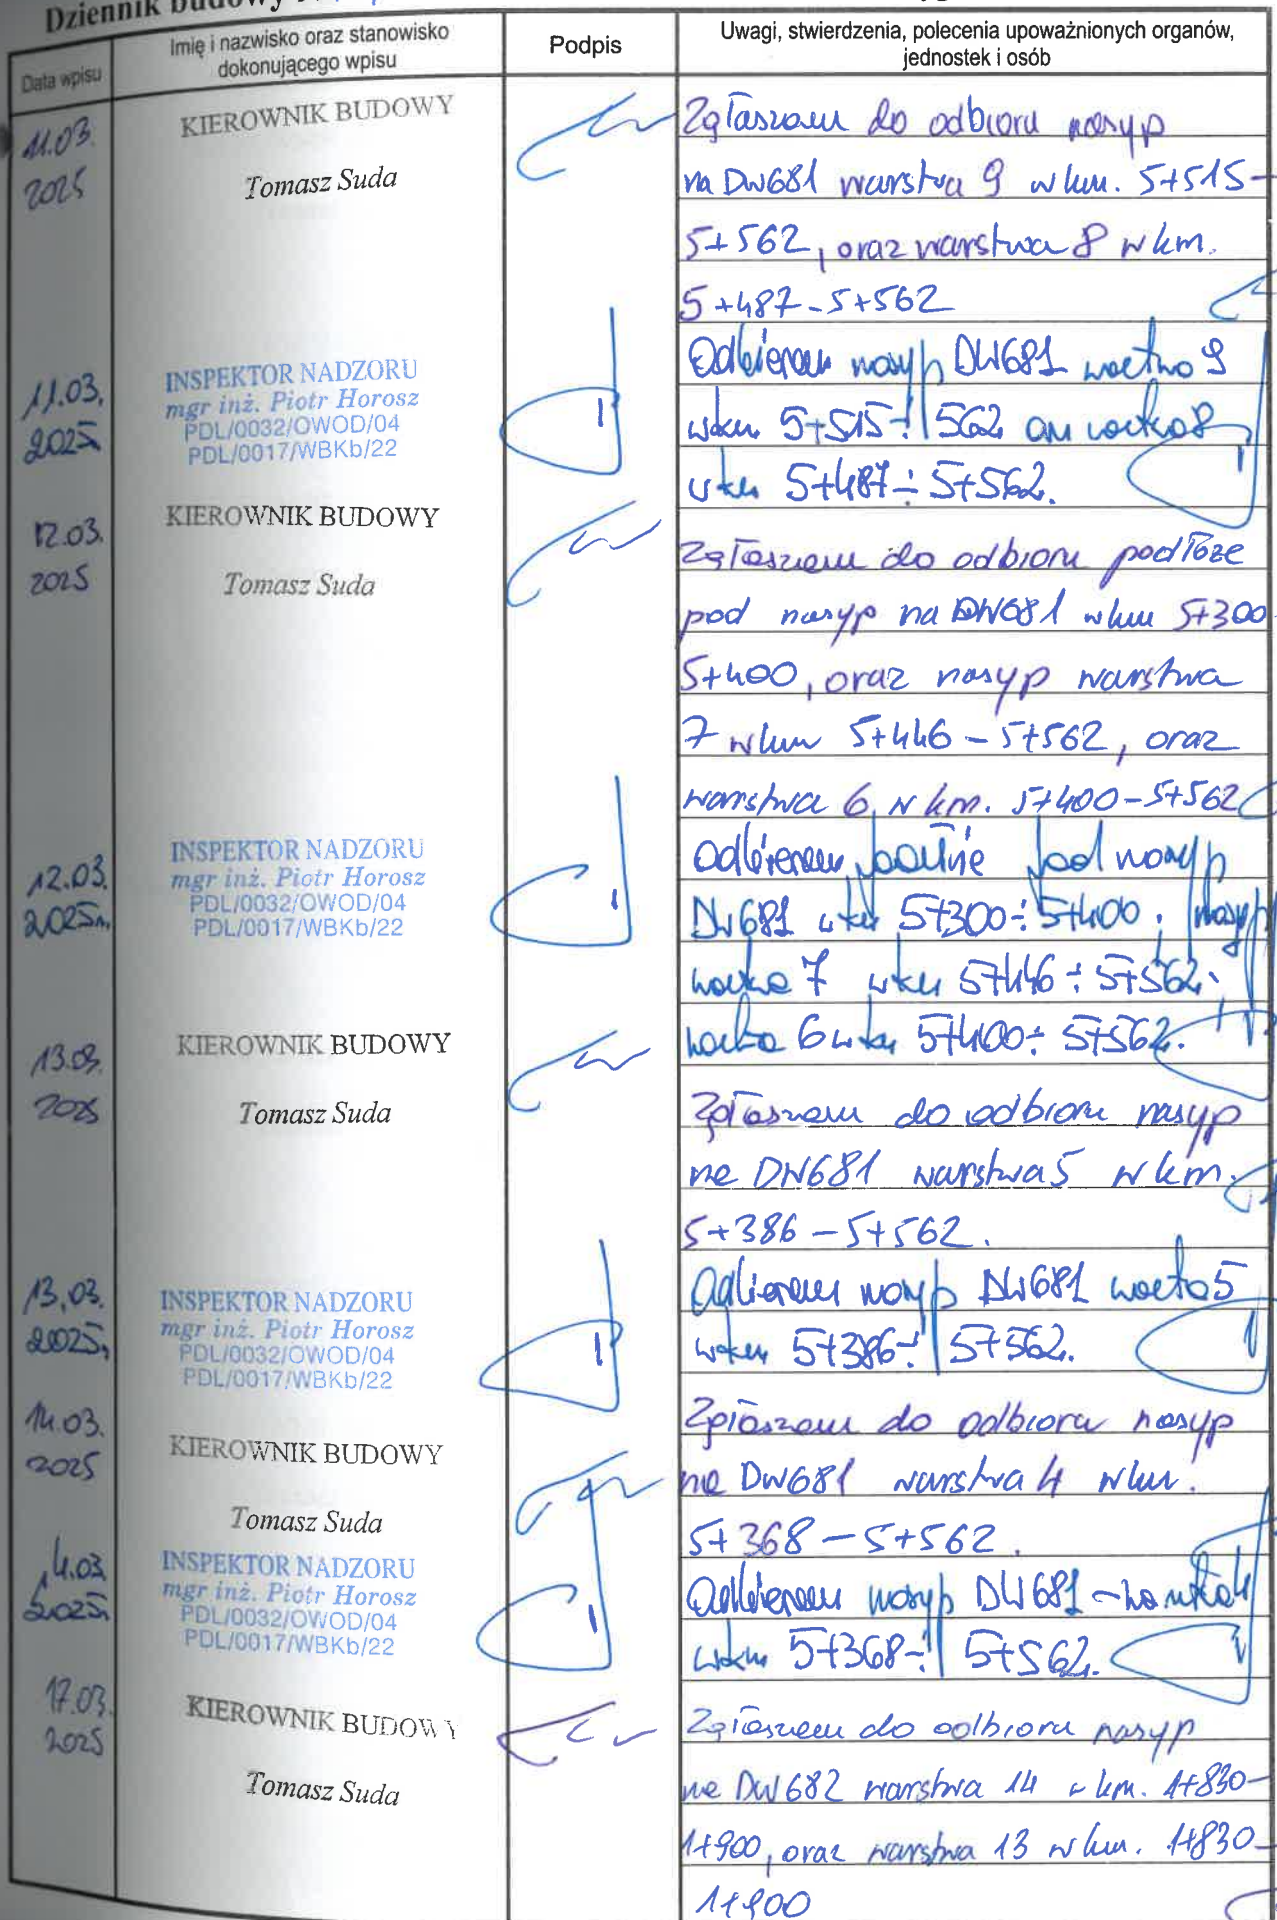 Dziennik budowy
Data wpisu
Imię i nazwisko oraz stanowisko
dokonującego wpisu
Podpis
Uwagi, stwierdzenia, polecenia upoważnionych organów,
jednostek i osób
11.03.
2025
KIEROWNIK BUDOWY
Tomasz Suda
Zgłaszam do odbioru nasyp
na DW681 warstwa 9 w km. 5+515-
5+562, oraz warstwa 8 w km.
5+487-5+562
11.03.
2025
INSPEKTOR NADZORU
mgr inż. Piotr Horosz
PDL/0032/OWOD/04
PDL/0017/WBKb/22
Odbieram nasyp DW681 warstwa 9
w km 5+515÷562 oraz warstwa 8
w km 5+487÷5+562.
12.03.
2025
KIEROWNIK BUDOWY
Tomasz Suda
Zgłaszam do odbioru podłoże
pod nasyp na DW681 w km 5+300-
5+400, oraz nasyp warstwa
7 w km 5+446 - 5+562, oraz
warstwa 6 w km. 5+400-5+562
12.03.
2025r.
INSPEKTOR NADZORU
mgr inż. Piotr Horosz
PDL/0032/OWOD/04
PDL/0017/WBKb/22
Odbieram podłoże pod nasyp
DW681 w km 5+300÷5+400, nasyp
warstwa 7 w km 5+446÷5+562,
warstwa 6 w km 5+400÷5+562.
13.03.
2025
KIEROWNIK BUDOWY
Tomasz Suda
Zgłaszam do odbioru nasyp
na DW681 warstwa 5 w km.
5+386 - 5+562.
13.03.
2025r.
INSPEKTOR NADZORU
mgr inż. Piotr Horosz
PDL/0032/OWOD/04
PDL/0017/WBKb/22
Odbieram nasyp DW681 warstwa 5
w km 5+386÷5+562.
14.03.
2025
KIEROWNIK BUDOWY
Tomasz Suda
Zgłaszam do odbioru nasyp
na DW681 warstwa 4 w km.
5+368 - 5+562.
14.03
2025r.
INSPEKTOR NADZORU
mgr inż. Piotr Horosz
PDL/0032/OWOD/04
PDL/0017/WBKb/22
Odbieram nasyp DW681 - warstwa 4
w km 5+368÷5+562.
17.03.
2025
KIEROWNIK BUDOWY
Tomasz Suda
Zgłaszam do odbioru nasyp
na DW682 warstwa 14 w km. 1+830-
1+900, oraz warstwa 13 w km. 1+830-
1+900